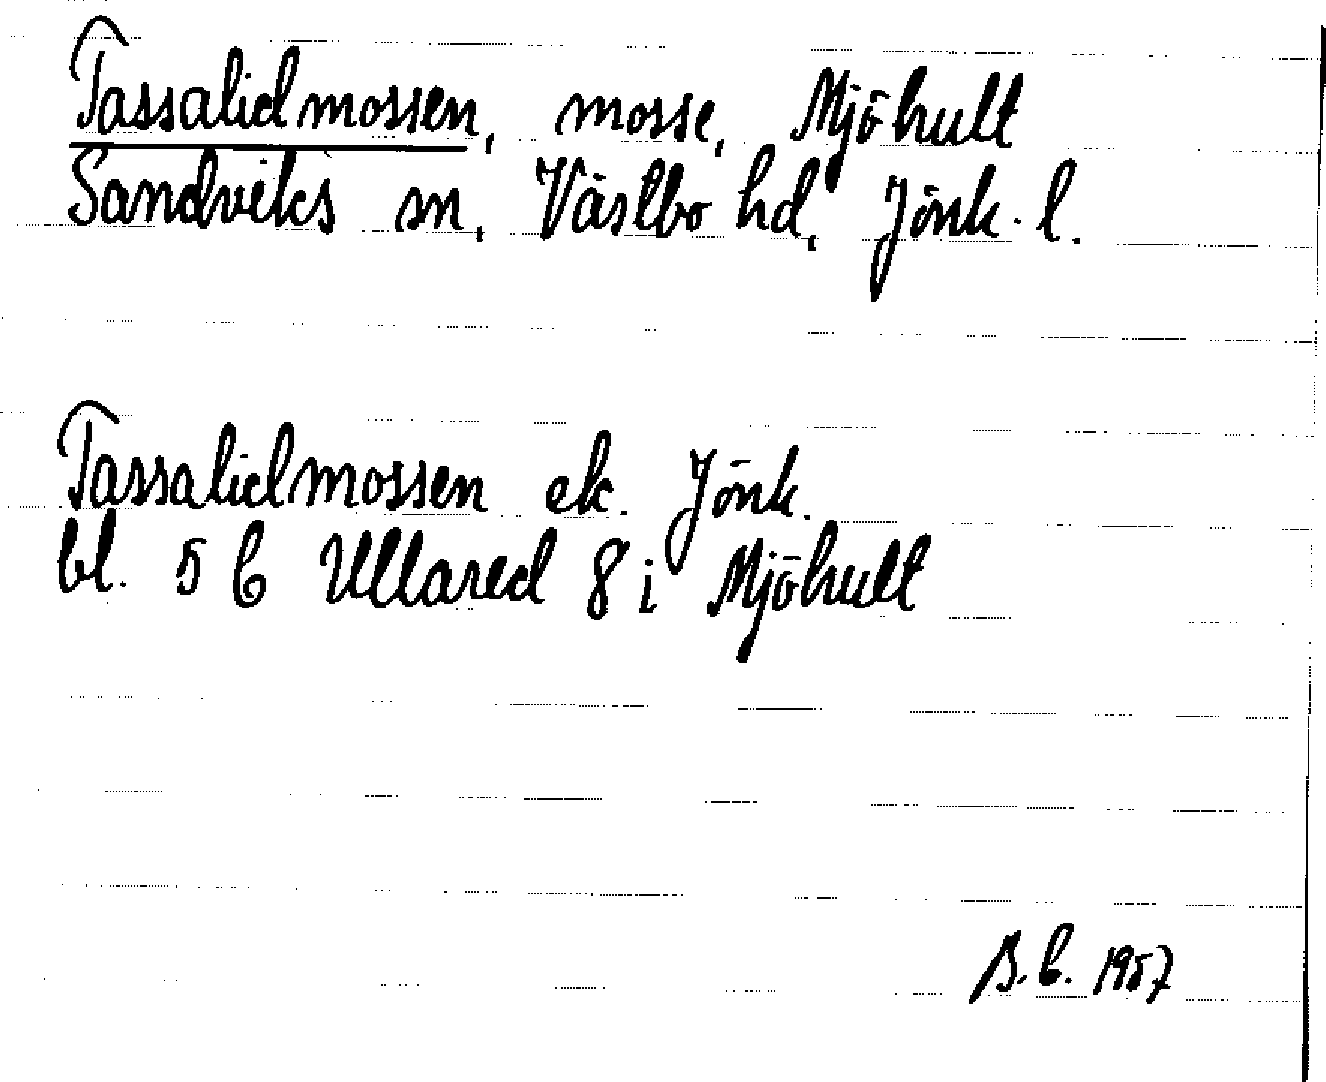 Tassalidmossen, mosse, Mjöhult
Sandviks sn, Västbo hd, Jönk. l.
Tassalidmossen ek. Jönk.
bl. 5 C Ullared 8 i Mjöhult
B.C. 1957